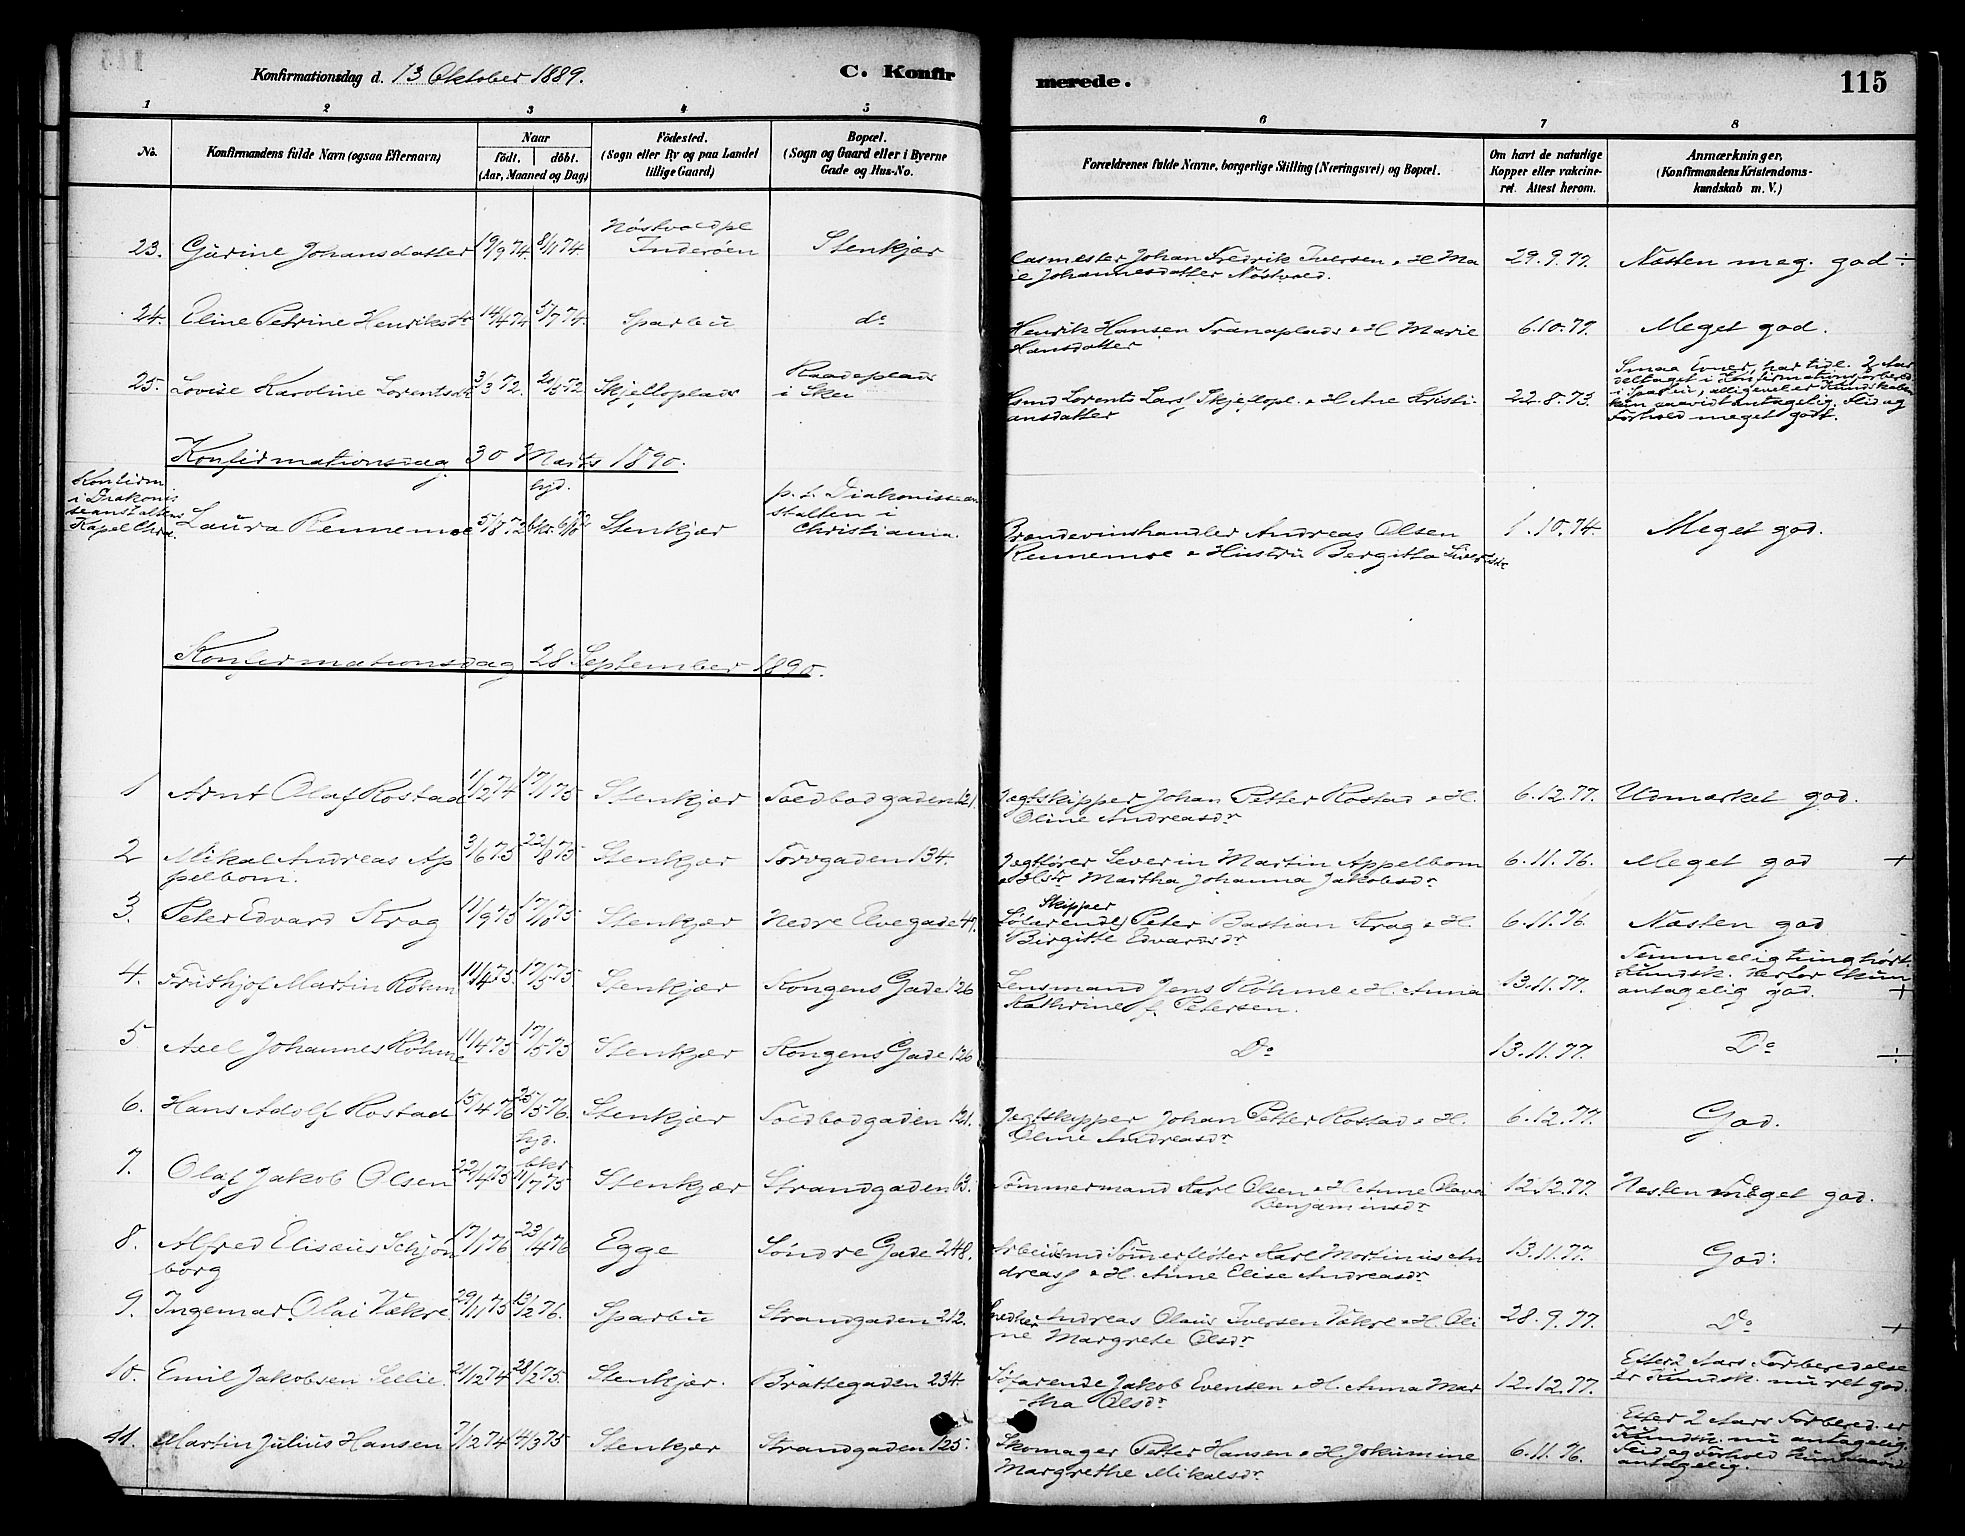 Konfirmationsdag d. 13 Oktober 1889.
C. Konfirmerede.
115
1 2 3 4 5 6 7 8
No.
Konfirmandens fulde Navn (ogsaa Efternavn)
Naar
födt. döbt.
(Aar, Maaned og Dag)
Födested.
(Sogn eller By og paa Landet
tillige Gaard)
Bopæl.
(Sogn og Gaard eller i Byerne
Gade og Hus-No.
Forældrenes fulde Navne, borgerlige Stilling (Næringsvei) og Bopæl.
Om havt de naturlige
Kopper eller vakcine-
ret. Attest herom.
Anmærkninger,
(Konfirmandens Kristendoms-
kundskab m. V.)
23. Gurine Johansdatter 19/9 74 8/11 74. Nöstvoldpl Inderöen Stenkjær
Johan Fredrik Iversen & H Ma
Johannesdatter Nöstvold.
29.9.77. Næsten meg. god ÷
24. Eline Petrine Henriksdr 14/4 74 5/7 74. Sparbu do
Henrik Hansen Tranaplads & H Marie
Hansdatter
6.10.77. Meget god.
25. Lovise Karoline Lorentsdr 3/3 72. 20/5 72 Skjelloplads Raadeplads i Skei
Lorents Lars Skjellopl. & H Ane Kristi-
ansdatter
22.8.73.
Smaa Evner, har tidl. 2 Aar
deltaget i Konfirmationsforbered.
i Sparbu, alligevel er Kundskaben
kun antagelig. Flid og
Forhold meget godt.
Konfirmationsdag 30 Marts 1890.
Konfirm
i Diakonis
seanstaltens
Kapel Chra.
Laura Rennemoe 5/8. 72 hjd. bkr. 6/10 72 Stenkjær
p. t. Diakonissean
stalten i
Christiania.
Brændevinshandler Andreas Olsen
Rennemoe & Hustru Bergitta
1.10.74. Meget god.
Konfirmationsdag 28 September 1890.
1 Arnt Olaf Rostad 1/12 74 17/1 75 Stenkjær Toldbodgaden 121.
Jagtskipper Johan Petter Rostad & H.
Oline Andreasdr
6.12.77. Udmærket god.
2 Mikal Andreas Ap
pelbom. 3/6 75 22/8 75 Stenkjær Torvgaden 134.
Jagtfører Severin Martin Appelbom
& Hstr Martha Johanna Jakobsdr
6.11.76. Meget god +
3. Peter Edvard Krog 11/9 75 17/10 75 Stenkjær Nedre Elvegade 47.
Skipper
Peter Bastian Krog & H.
Birgitte Edvardsdr
6.11.76. Næsten god
4. Frithjof Martin Röhme 11/4 75. 17/5 75 Stenkjær Kongens Gade 126
Lensmand Jens Röhme & H. Anna
Kathrine f. Petersen.
13.11.77.
Temmelig tunghørt.
Kundsk. derfor kun
antagelig god. +
5 Axel Johannes Röhme 11/4 75 17/5 75 Stenkjær Kongens Gade 126
Do 13.11.77. Do ÷
6. Hans Adolf Rostad 15/4 76 25/5 76. Stenkjær Toldbodgaden 121.
Jagtskipper Johan Petter Rostad & H.
Oline Andreasdr
6.12.77. God.
7. Olaf Jakob Olsen 22/4 75 hjd. bkr 11/7 75 Stenkjær Strandgaden 63.
Tömmermand Karl Olsen & H. Anne Olava
Benjaminsdr
12.12.77. Næsten Meget god.
8. Alfred Elisæus Schjön
borg 17/1 76 23/4 76 Egge Söndre Gade 248.
Arbeidsmd Tömmerfløter Karl Martinus An
dreass & H. Anne Elise Andreasdr
13.11.77. God.
9. Ingemar Olai Vækre 29/11 75 13/2 76. Sparbu Strandgaden 212.
Snedker Andreas Olaus Iversen Vækre & H. Oli
ne Margrete Olsdr
28.9.77. Do +
10. Emil Jakobsen Sellie. 21/12 74 28/2 75. Stenkjær. Brattegaden 234.
Söfarende Jakob Evensen & H. Anna Mar
tha Olsdr
12.12.77.
Efter 2 Aars Forberedelse
er Kundsk. nu ret god.
11. Martin Julius Hansen 7/12 74 4/3 75 Stenkjær Strandgaden 125.
Skomager Petter Hansen & H. Jokumine
Margrethe Mikalsdr
6.11.76.
Efter 2 Aars Forbered. er
Kundsk. nu antagelig.
Flid og Forhold kun
antagelig.